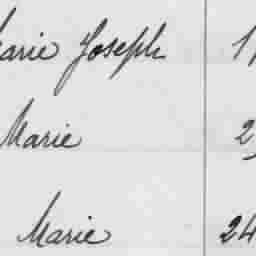 Marie Joseph
Marie
Marie 24